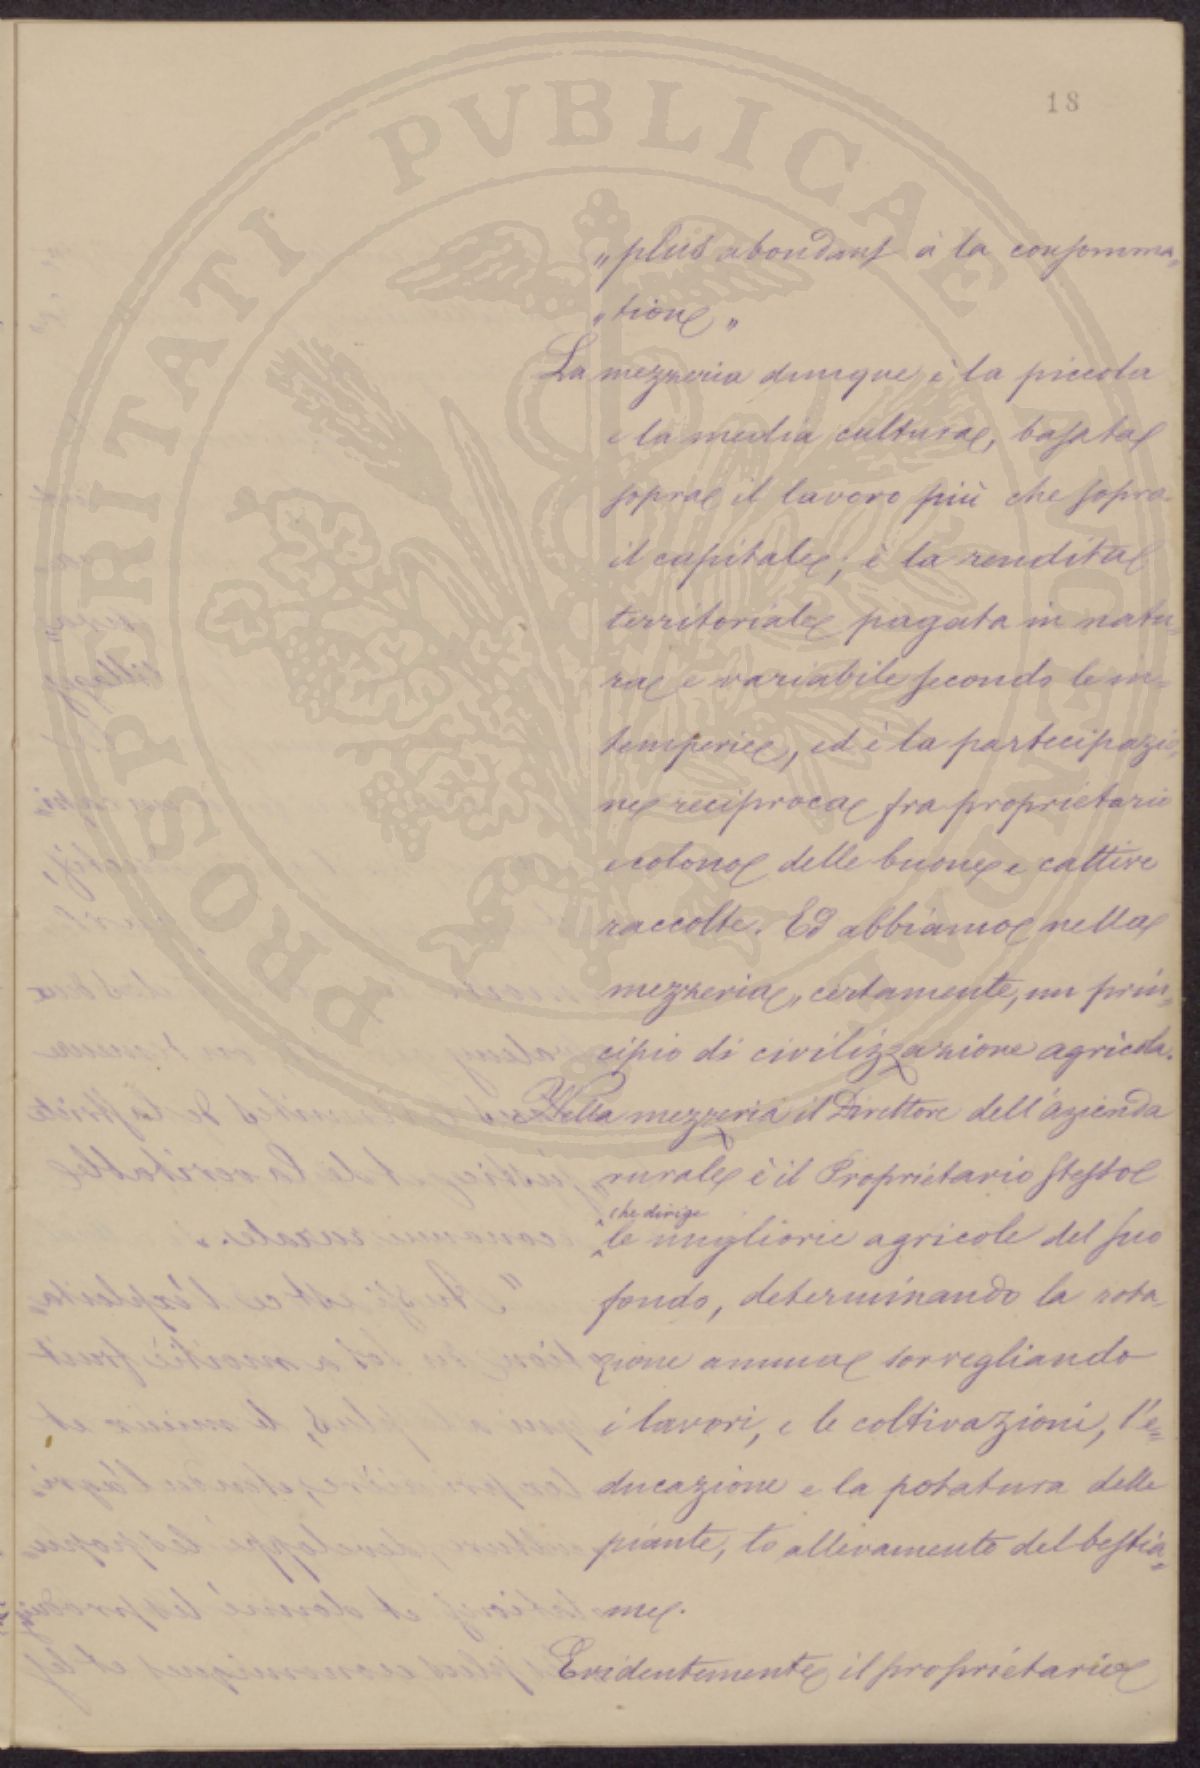 PROSPERITATI PVBLICAE AVGENDAE
18
„plus abondans à la consomma„
„tion„
La mezzeria dunque è la piccola
e la media cultura, basata
sopra il lavoro più che sopra
il capitale; è la rendita
territoriale pagata in natu„
ra e variabile secondo le in=
temperie, ed è la partecipazio„
ne reciproca fra proprietario
e colono delle buone e cattive
raccolte. Ed abbiamo nella
mezzeria, certamente, un prin=
cipio di civilizzazione agricola.
Nella mezzeria il Direttore dell'azienda
rurale è il Proprietario stesso
che dirige
le migliorie agricole del suo
fondo, determinando la rota„
zione annua sorvegliando
i lavori, e le coltivazioni, l'e=
ducazione e la potatura delle
piante, lo allevamento del bestia=
me.
Evidentemente il proprietario